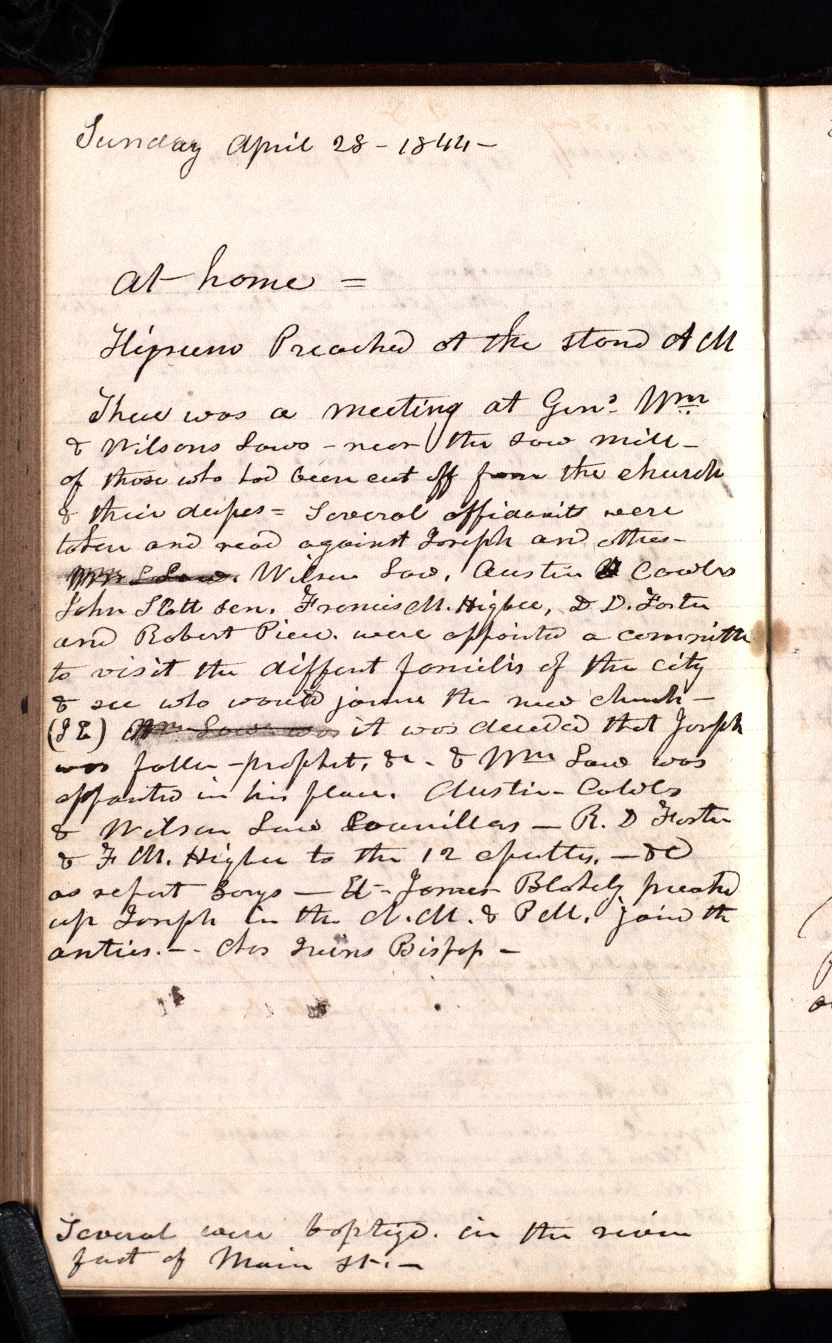 Sunday April 28 - 1844 -
at home =
Hyrum Preached at the stand A M
There was a meeting at Genˢ Wᵐ
& Wilsons Laws - near the saw mill -
of those who had been cut off from the church
& their dupes = Several affidavits were
taken and read against Joseph and others -
Wm Law. Wilson Law. Austin Cowles
John Scott Sen. Francis M. Higbee, D D. Foster
and Robert Pierce. were appointed a committe
to visit the diffent familis of the city
& see who would joinne the new church -
(IE) Wm Law was it was decided that Joseph
was fallen - prophet, &c - & Wm Law was
appointed in his place. Austin - Cowles
& Wilson Law Councillers — R. D Foster
& F M. Higbee to the 12 apostles, — &c
as report says — El - James Blakely preachd
up Joseph in the A. M. & P M. joind the
anties. - - Chs Ivins Bishop -
Several were baptizd. in the river
foot of Main St. -